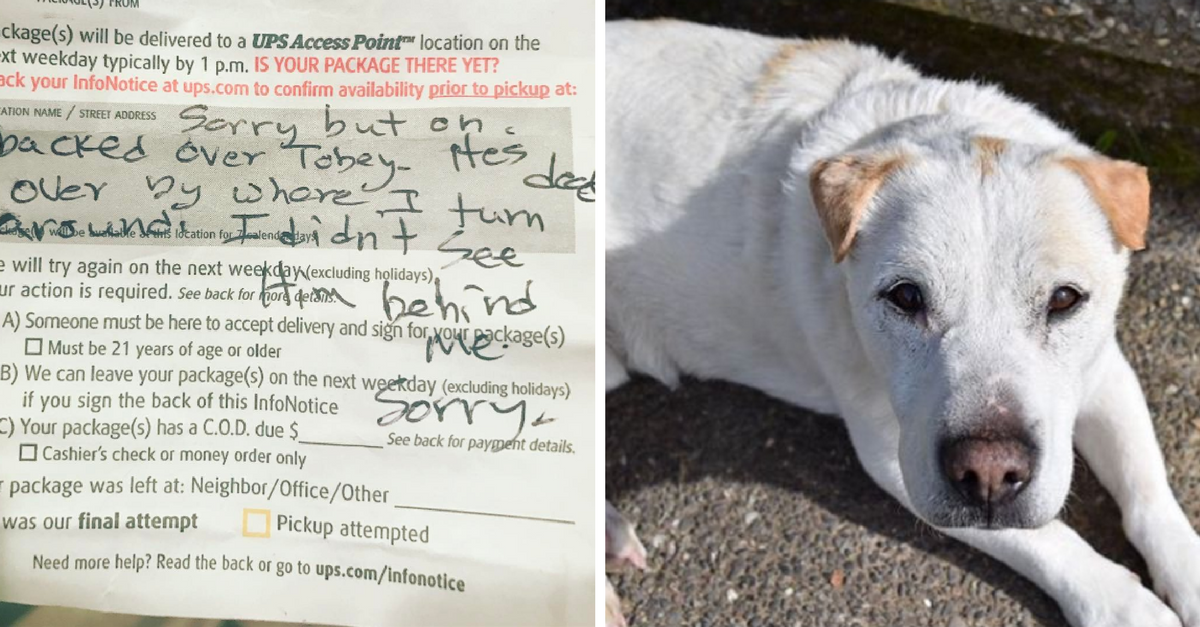 KAGE(S) FROM
ckage(s) will be delivered to a UPS Access Point™ location on the
xt weekday typically by 1 p.m. IS YOUR PACKAGE THERE YET?
ack your InfoNotice at ups.com to confirm availability prior to pickup at:
ATION NAME / STREET ADDRESS Sorry but on.
backed over Tobey- Hes dead
over by where I turn
around. I didn't see
will be available at this location for 7 calendar days
e will try again on the next weekday (excluding holidays).
ur action is required. See back for more details.
Him behind
A) Someone must be here to accept delivery and sign for your package(s)
me.
Must be 21 years of age or older
B) We can leave your package(s) on the next weekday (excluding holidays)
if you sign the back of this InfoNotice
Sorry-
C) Your package(s) has a C.O.D. due $ See back for payment details.
Cashier's check or money order only
r package was left at: Neighbor/Office/Other
was our final attempt Pickup attempted
Need more help? Read the back or go to ups.com/infonotice